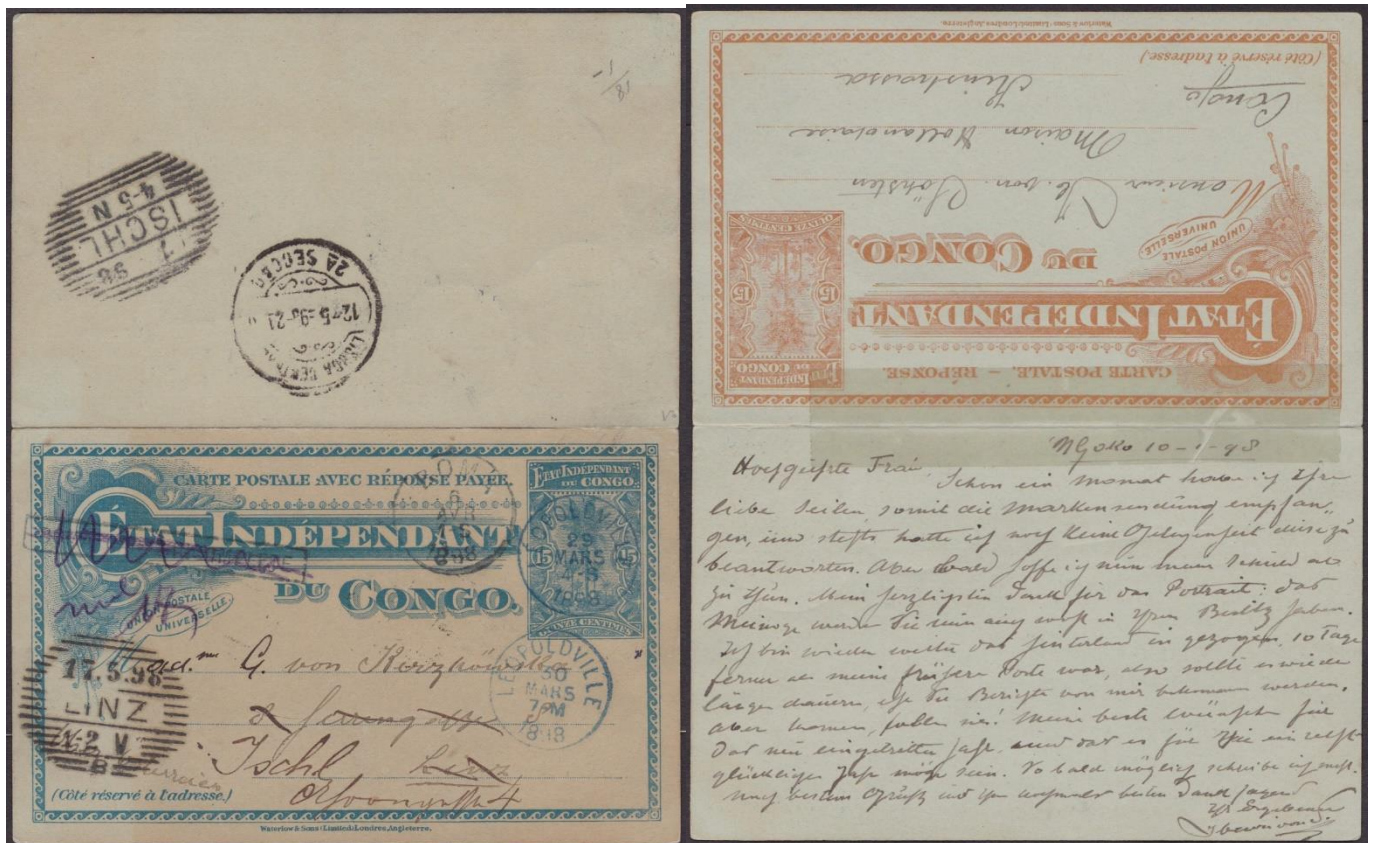 1/81
ISCHL
4-5 N
98
LISBOA CENTRAL
2A SECÇÃO
CARTE POSTALE AVEC RÉPONSE PAYÉE.
ÉTAT INDÉPENDANT
DU CONGO.
UNION POSTALE
UNIVERSELLE.
ÉTAT INDÉPENDANT
DU CONGO.
15 15
QUINZE CENTIMES
BOMA
1898
LEOPOLDVILLE
29
MARS
4-S
1898
LEOPOLDVILLE
30
MARS
7-M
1898
17.5.98
LINZ
1-2 V
B
Mad.me G. von
Ischl Linz
4
(Côté réservé à l'adresse.)
Waterlow & Sons Limited, Londres, Angleterre.
Waterlow & Sons Limited, Londres, Angleterre.
CARTE POSTALE. — RÉPONSE.
ÉTAT INDÉPENDANT
DU CONGO.
UNION POSTALE
UNIVERSELLE
ÉTAT INDÉPENDANT
DU CONGO
15 15
QUINZE CENTIMES
Monsieur von
Maison Hollandaise
Kinshassa
Congo
(Côté réservé à l'adresse.)
NGoko 10-1-98
Hochgeehrte Frau,
Schon ein Monat habe ich Ihre
liebe Zeilen somit die Markensendung empfan-
gen, und stets hatte ich noch keine Gelegenheit diese zu
beantworten. Aber bald hoffe ich nun
zu thun. Mein herzlichsten Dank für das Portrait: das
Meinige werden Sie nun auch wohl in Ihren Besitz haben.
Ich bin wieder weiter das Hinterland in gezogen, 10 Tage
ferner als meine frühere Poste war, also sollte es wieder
länger dauern, ehe Sie Berichte von mir bekommen werden.
aber kommen, sollen sie! Meine beste Wünsche für
das neu eingetretene Jahr, und das es für Sie ein recht
glückliches Jahr möge sein. So bald möglich schreibe ich mehr.
besten Dank sagend
Ihr Ergebener